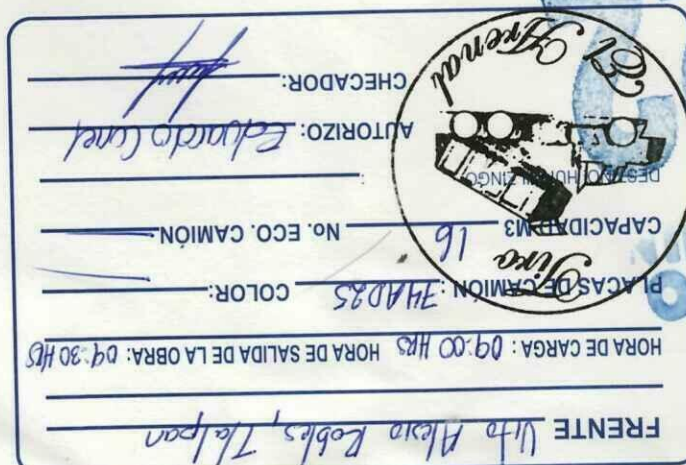 FRENTE Vito Alesio Robles, Tlalpan
HORA DE CARGA: 09:00 HRS HORA DE SALIDA DE LA OBRA: 09:30 HRS
PLACAS DE CAMIÓN: 74AD25 COLOR:
CAPACIDAD M3 16 No. ECO. CAMIÓN
DESTINO: HUITZILZINGO
AUTORIZO: Eduardo
CHECADOR:
Tiro
El Arenal